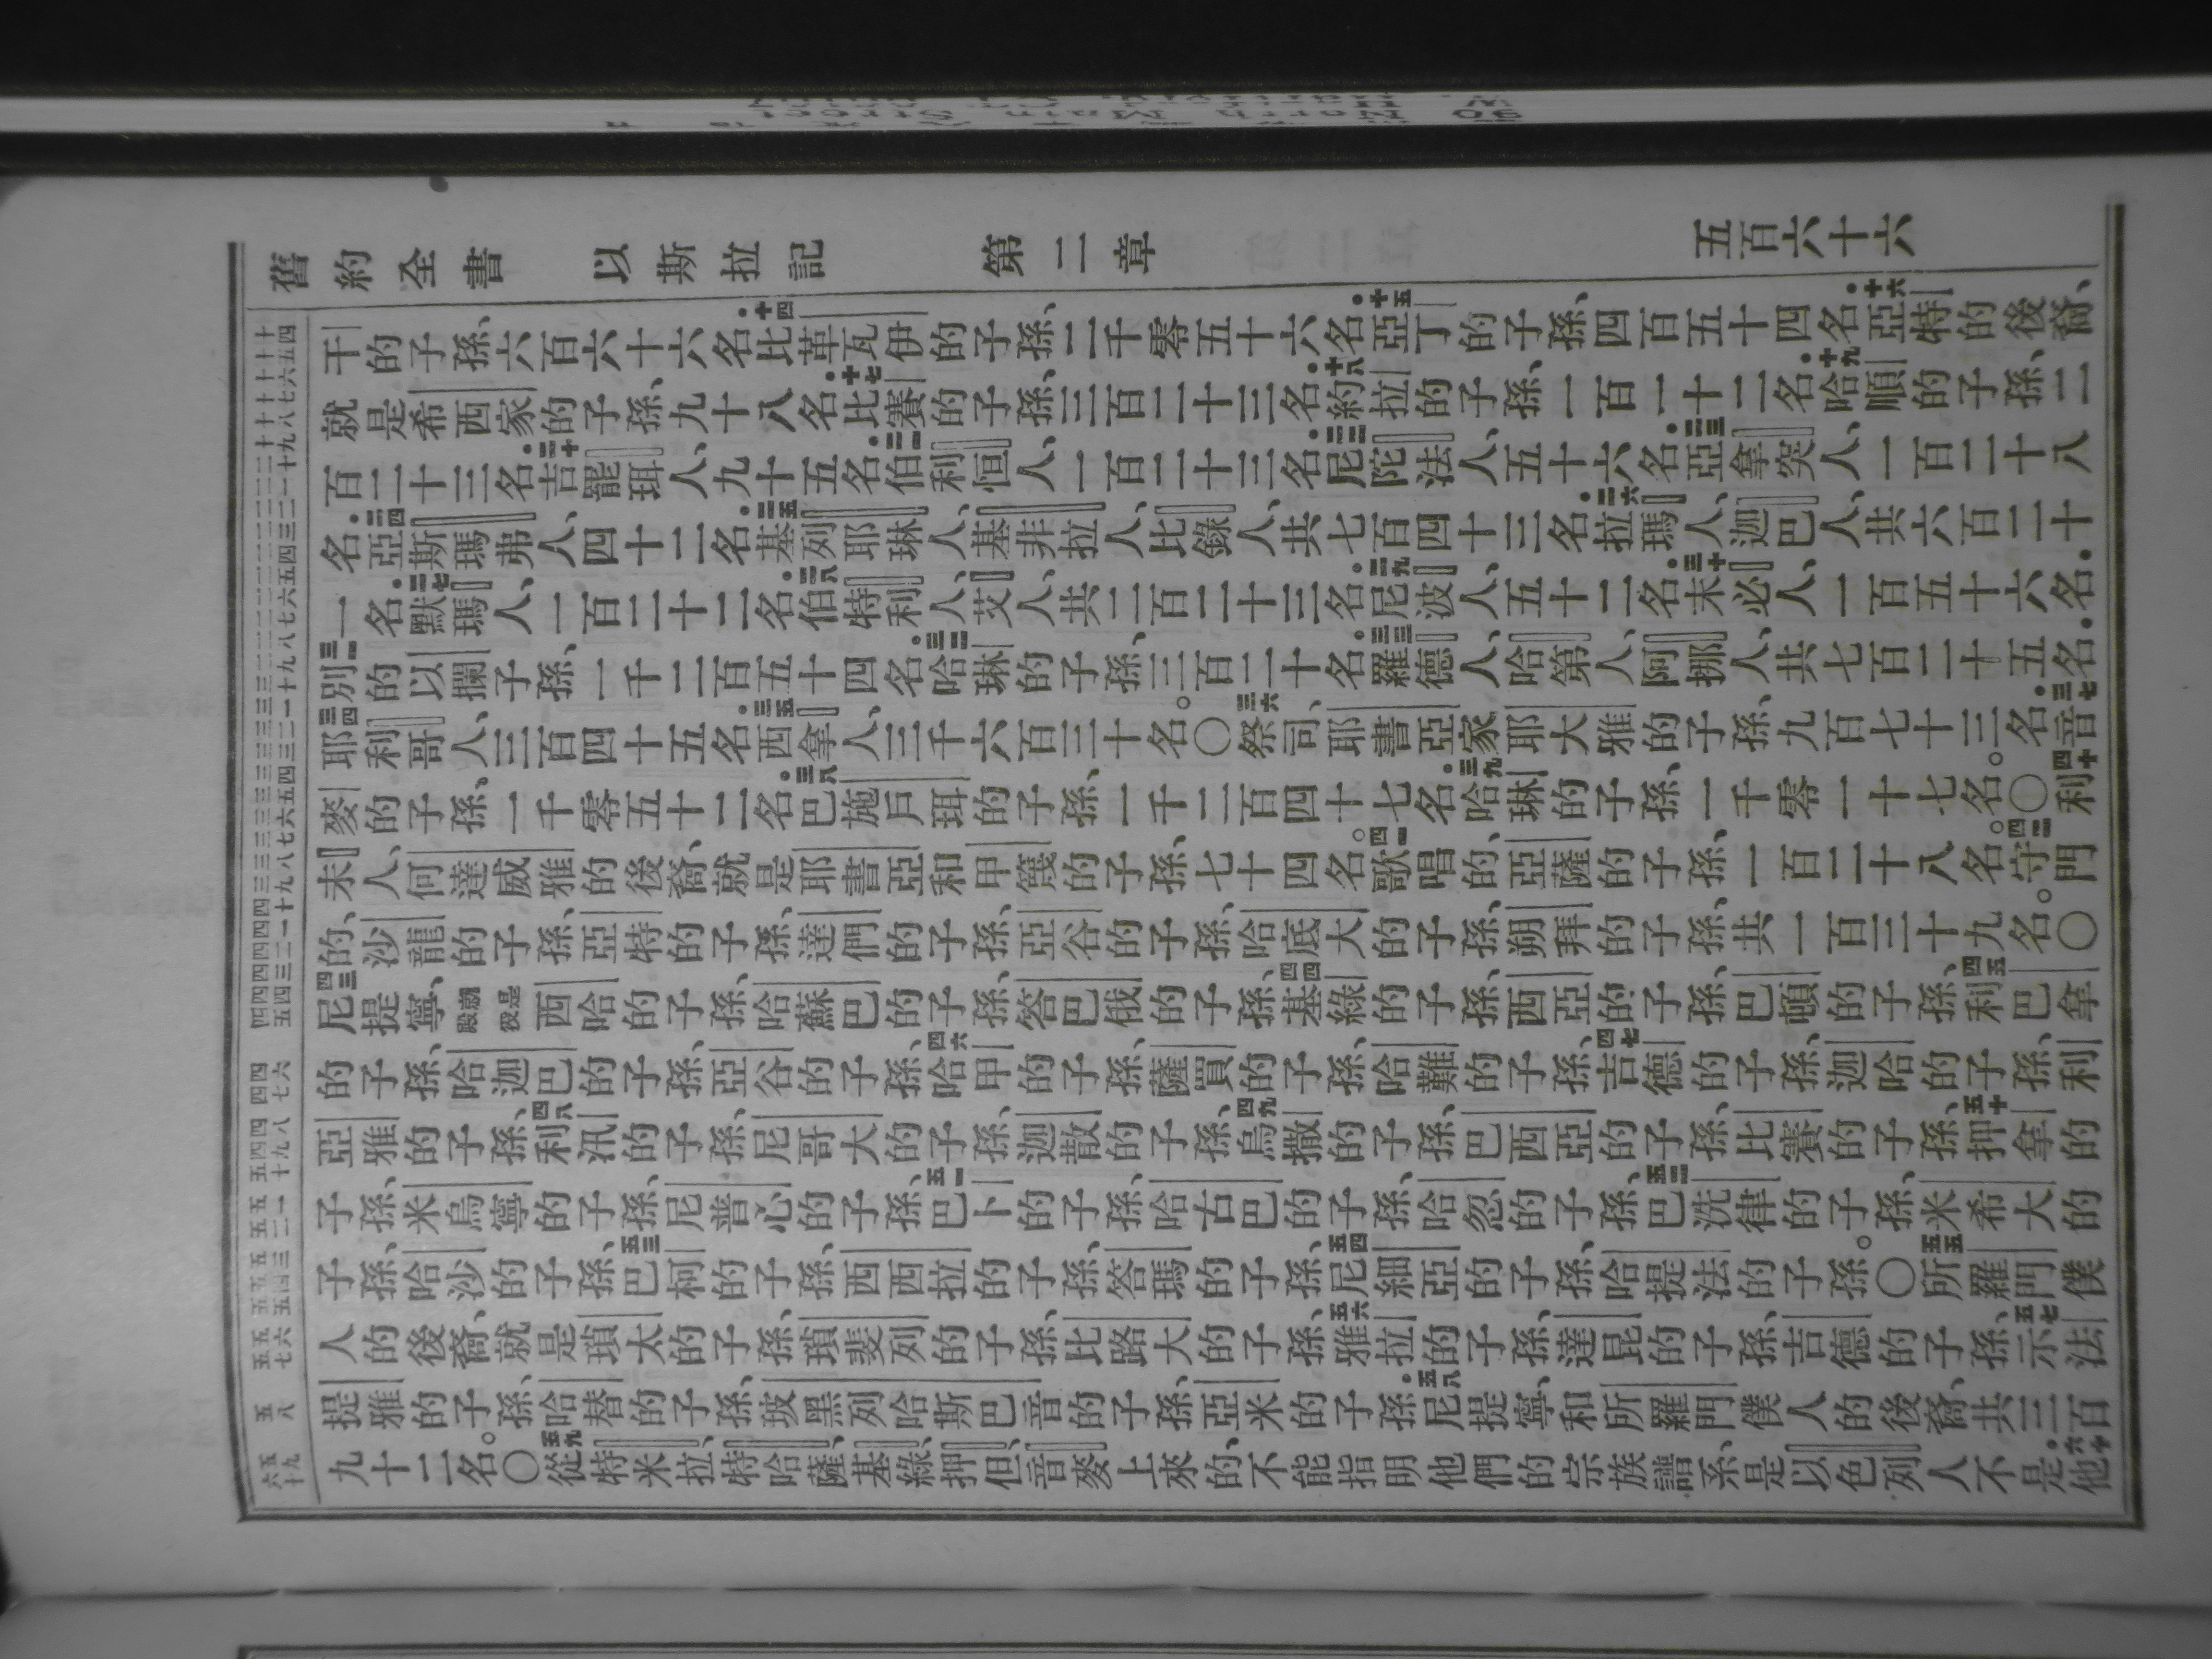 舊約全書　以斯拉記　第二章　五百六十六
干的子孫、六百六十六名．十四比革瓦伊的子孫、二千零五十六名．十五亞丁的子孫、四百五十四名．十六亞特的後裔、
就是希西家的子孫、九十八名．十七比賽的子孫、三百二十三名．十八約拉的子孫、一百一十二名．十九哈順的子孫、二
百二十三名．二十吉罷珥人、九十五名．二一伯利恒人、一百二十三名．二二尼陀法人、五十六名．二三亞拿突人、一百二十八
名．二四亞斯瑪弗人、四十二名．二五基列耶琳人、基非拉人、比錄人、共七百四十三名．二六拉瑪人、迦巴人、共六百二十
一名．二七默瑪人、一百二十二名．二八伯特利人、艾人、共二百二十三名．二九尼波人、五十二名．三十末必人、一百五十六名．
三一別的以攔子孫、一千二百五十四名．三二哈琳的子孫、三百二十名．三三羅德人、哈第人、阿挪人、共七百二十五名．
三四耶利哥人、三百四十五名．三五西拿人、三千六百三十名。〇三六祭司、耶書亞家耶大雅的子孫、九百七十三名．三七音
麥的子孫、一千零五十二名．三八巴施戶珥的子孫、一千二百四十七名．三九哈琳的子孫、一千零一十七名。〇四十利
未人、何達威雅的後裔、就是耶書亞和甲篾的子孫、七十四名。四一歌唱的、亞薩的子孫、一百二十八名。四二守門
的、沙龍的子孫、亞特的子孫、達們的子孫、亞谷的子孫、哈底大的子孫、朔拜的子孫、共一百三十九名。〇
四三尼提寧、就是殿役西哈的子孫、哈蘇巴的子孫、答巴俄的子孫、四四基綠的子孫、西亞的子孫、巴頓的子孫、四五利巴拿
的子孫、哈迦巴的子孫、亞谷的子孫、四六哈甲的子孫、薩買的子孫、哈難的子孫、四七吉德的子孫、迦哈的子孫、利
亞雅的子孫、四八利汛的子孫、尼哥大的子孫、迦散的子孫、四九烏撒的子孫、巴西亞的子孫、比賽的子孫、五十押拿的
子孫、米烏寧的子孫、尼普心的子孫、五一巴卜的子孫、哈古巴的子孫、哈忽的子孫、五二巴洗律的子孫、米希大的
子孫、哈沙的子孫、五三巴柯的子孫、西西拉的子孫、答瑪的子孫、五四尼細亞的子孫、哈提法的子孫。〇五五所羅門僕
人的後裔、就是瑣太的子孫、瑣斐列的子孫、比路大的子孫、五六雅拉的子孫、達昆的子孫、吉德的子孫、五七示法
提雅的子孫、哈替的子孫、玻黑列哈斯巴音的子孫、亞米的子孫．五八尼提寧、和所羅門僕人的後裔、共三百
九十二名。〇五九從特米拉、特哈薩、基綠、押但、音麥上來的、不能指明他們的宗族譜系、是以色列人不是．六十他